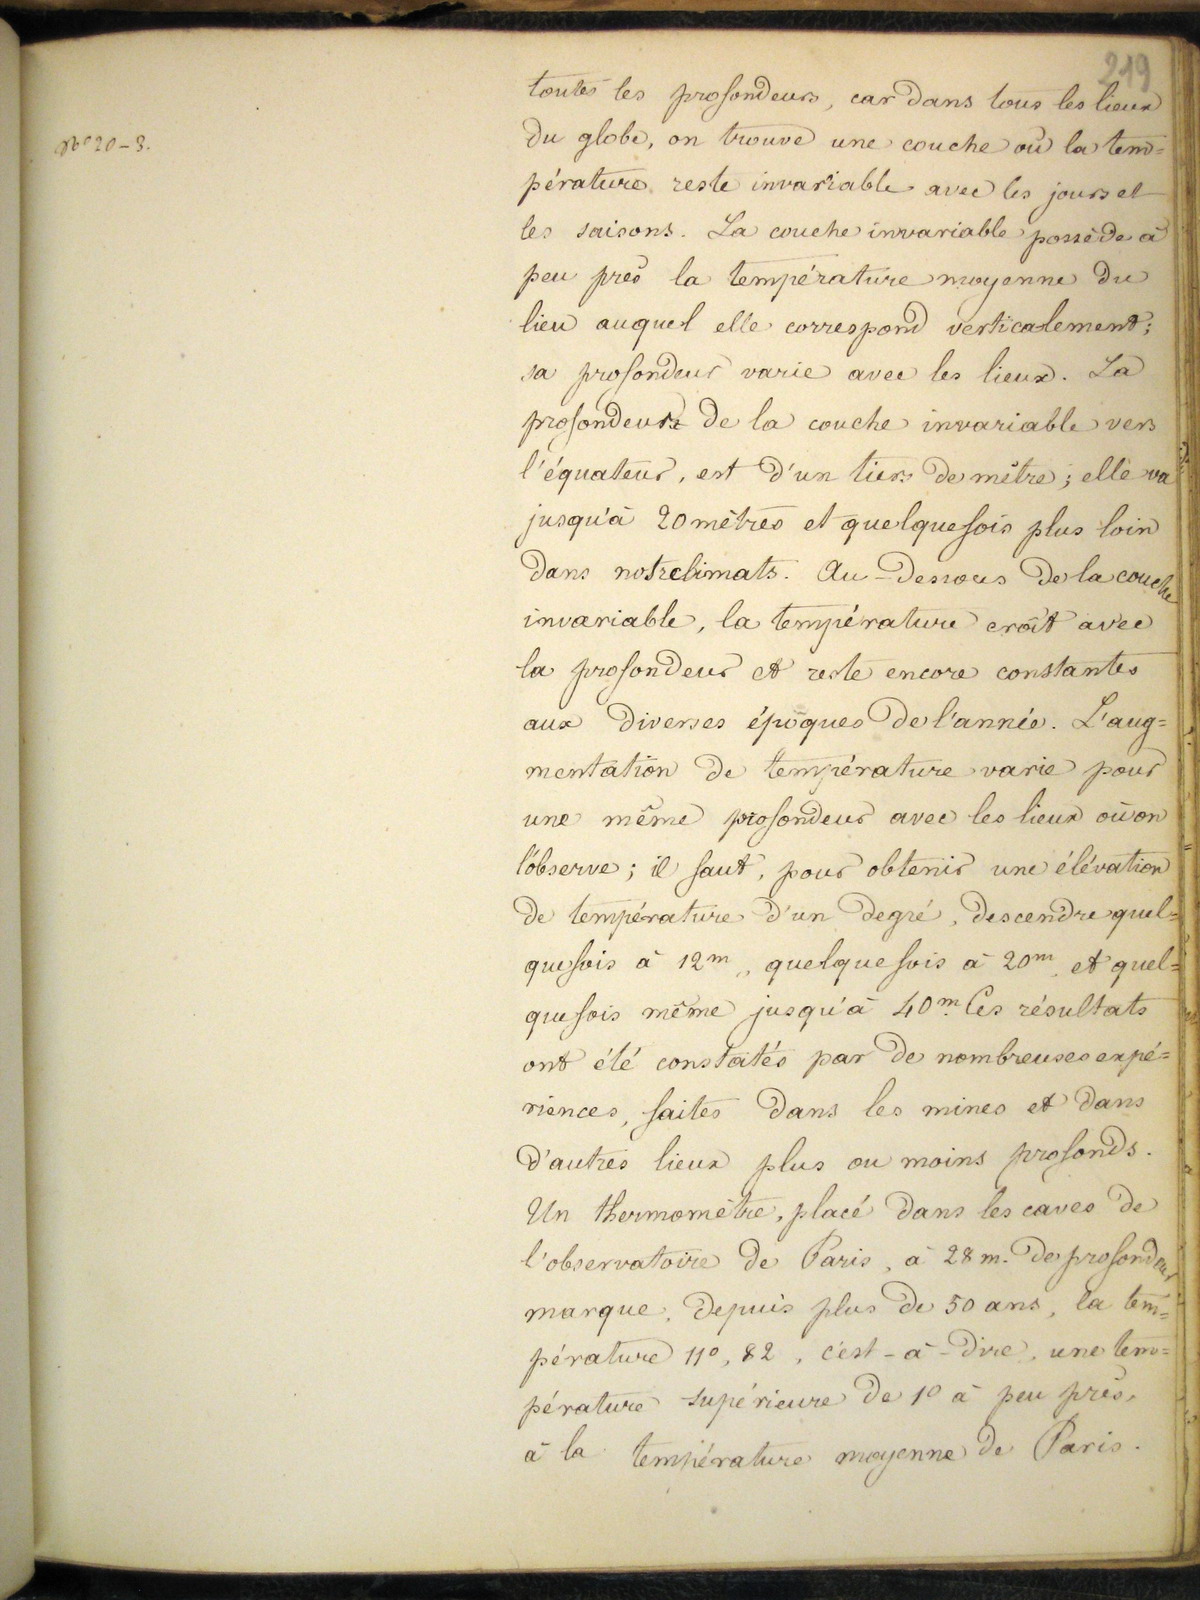 219
toutes les profondeurs, car dans tous les lieux
Nº 20-3.
du globe, on trouve une couche où la tem=
pérature reste invariable avec les jours et
les saisons. La couche invariable possède à
peu près la température moyenne du
lieu auquel elle correspond verticalement;
sa profondeur varie avec les lieux. La
profondeur de la couche invariable vers
l'équateur, est d'un tiers de mètre; elle va
jusqu'à 20 mètres et quelquefois plus loin
dans nos climats. Au-dessous de la couche
invariable, la température croît avec
la profondeur et reste encore constantes
aux diverses époques de l'année. L'aug=
mentation de température varie pour
une même profondeur avec les lieux où on
l'observe; il faut, pour obtenir une élévation
de température d'un degré, descendre quel=
quefois à 12m, quelquefois à 20m, et quel=
quefois même jusqu'à 40m. Ces résultats
ont été constatés par de nombreuses expé=
riences, faites dans les mines et dans
d'autres lieux plus ou moins profonds.
Un thermomètre, placé dans les caves de
l'observatoire de Paris, à 28 m. de profondeur
marque, depuis plus de 50 ans, la tem=
pérature 11º, 82, c'est-à-dire, une tem=
pérature supérieure de 1º à peu près,
à la température moyenne de Paris.